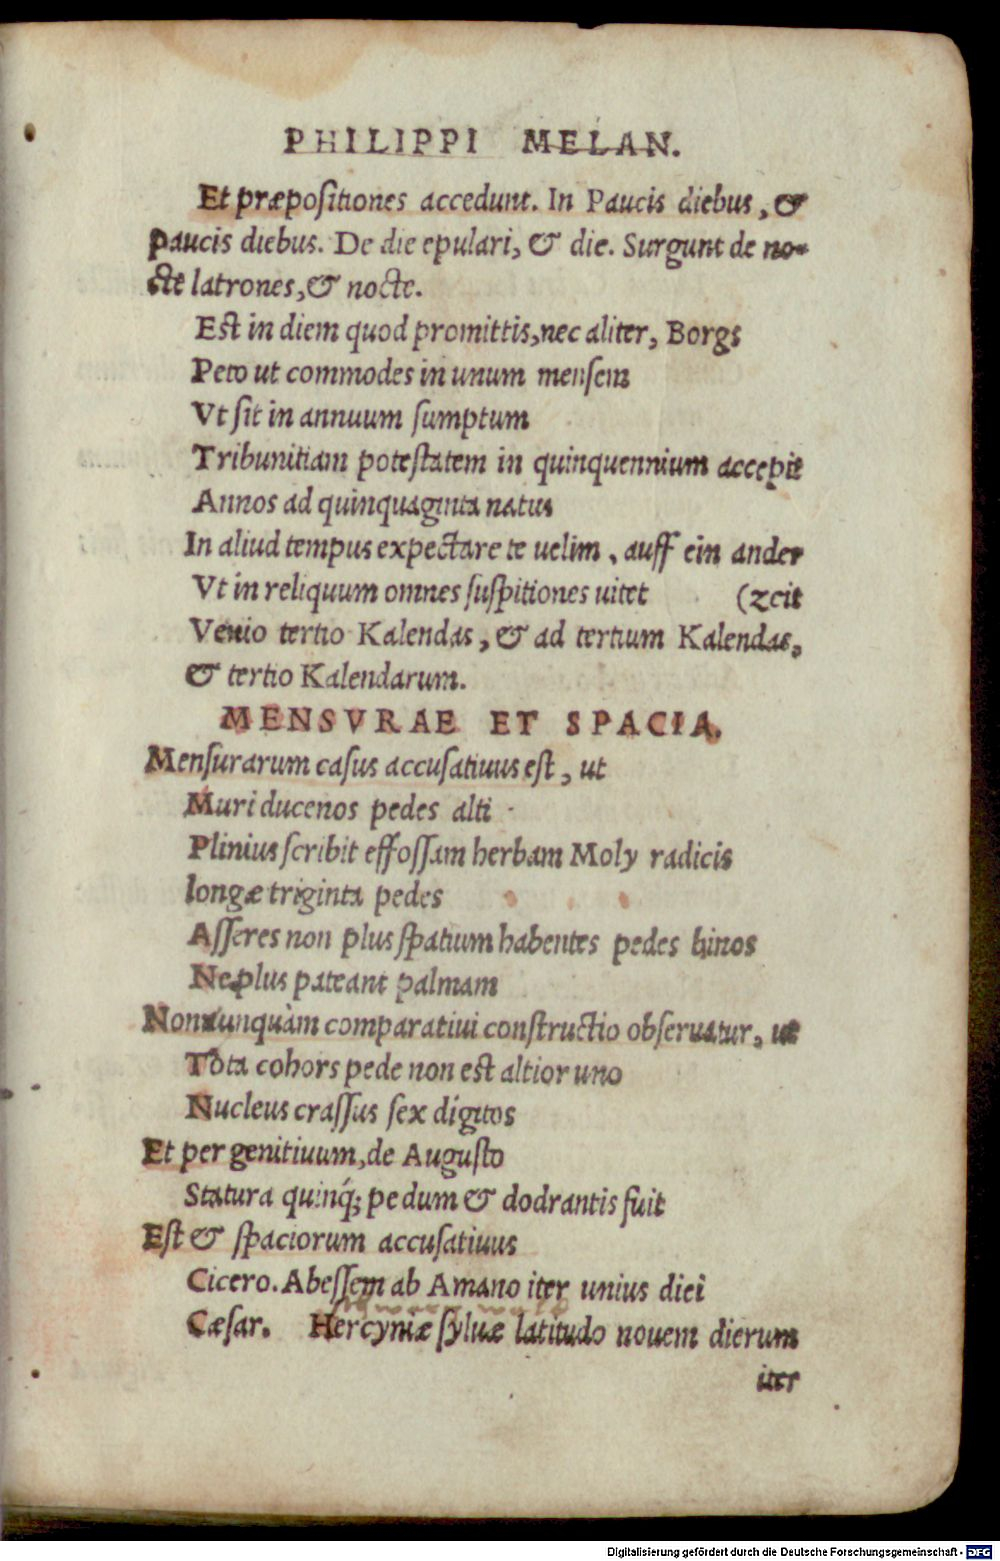 PHILIPPI MELAN.
Et præpositiones accedunt. In Paucis diebus, &
paucis diebus. De die epulari, & die. Surgunt de no-
cte latrones, & nocte.
Est in diem quod promittis, nec aliter, Borgs
Peto ut commodes in unum mensem
Vt sit in annuum sumptum
Tribunitiam potestatem in quinquennium accepit
Annos ad quinquaginta natus
In aliud tempus expectare te uelim, auff ein ander
Vt in reliquum omnes suspitiones uitet (zeit
Venio tertio Kalendas, & ad tertium Kalendas,
& tertio Kalendarum.
MENSVRAE ET SPACIA.
Mensurarum casus accusatiuus est, ut
Muri ducenos pedes alti
Plinius scribit effossam herbam Moly radicis
longæ triginta pedes
Asseres non plus spatium habentes pedes binos
Ne plus pateant palmam
Nonnunquàm comparatiui constructio obseruatur, ut
Tota cohors pede non est altior uno
Nucleus crassus sex digitos
Et per genitiuum, de Augusto
Statura quinq́; pedum & dodrantis fuit
Est & spaciorum accusatiuus
Cicero. Abessem ab Amano iter unius diei
Cæsar. Hercyniæ syluæ latitudo nouem dierum
iter
Digitalisierung gefördert durch die Deutsche Forschungsgemeinschaft - DFG